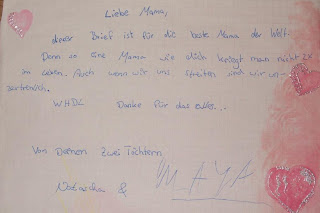 Liebe Mama,
dieser Brief ist für die beste Mama der Welt.
Denn so eine Mama wie dich kriegt man nicht 2x
im Leben. Auch wenn wir uns streiten sind wir un-
zertrennlich.
WHDL Danke für das alles...
Von Deinen zwei Töchtern
Natascha &
MAYA